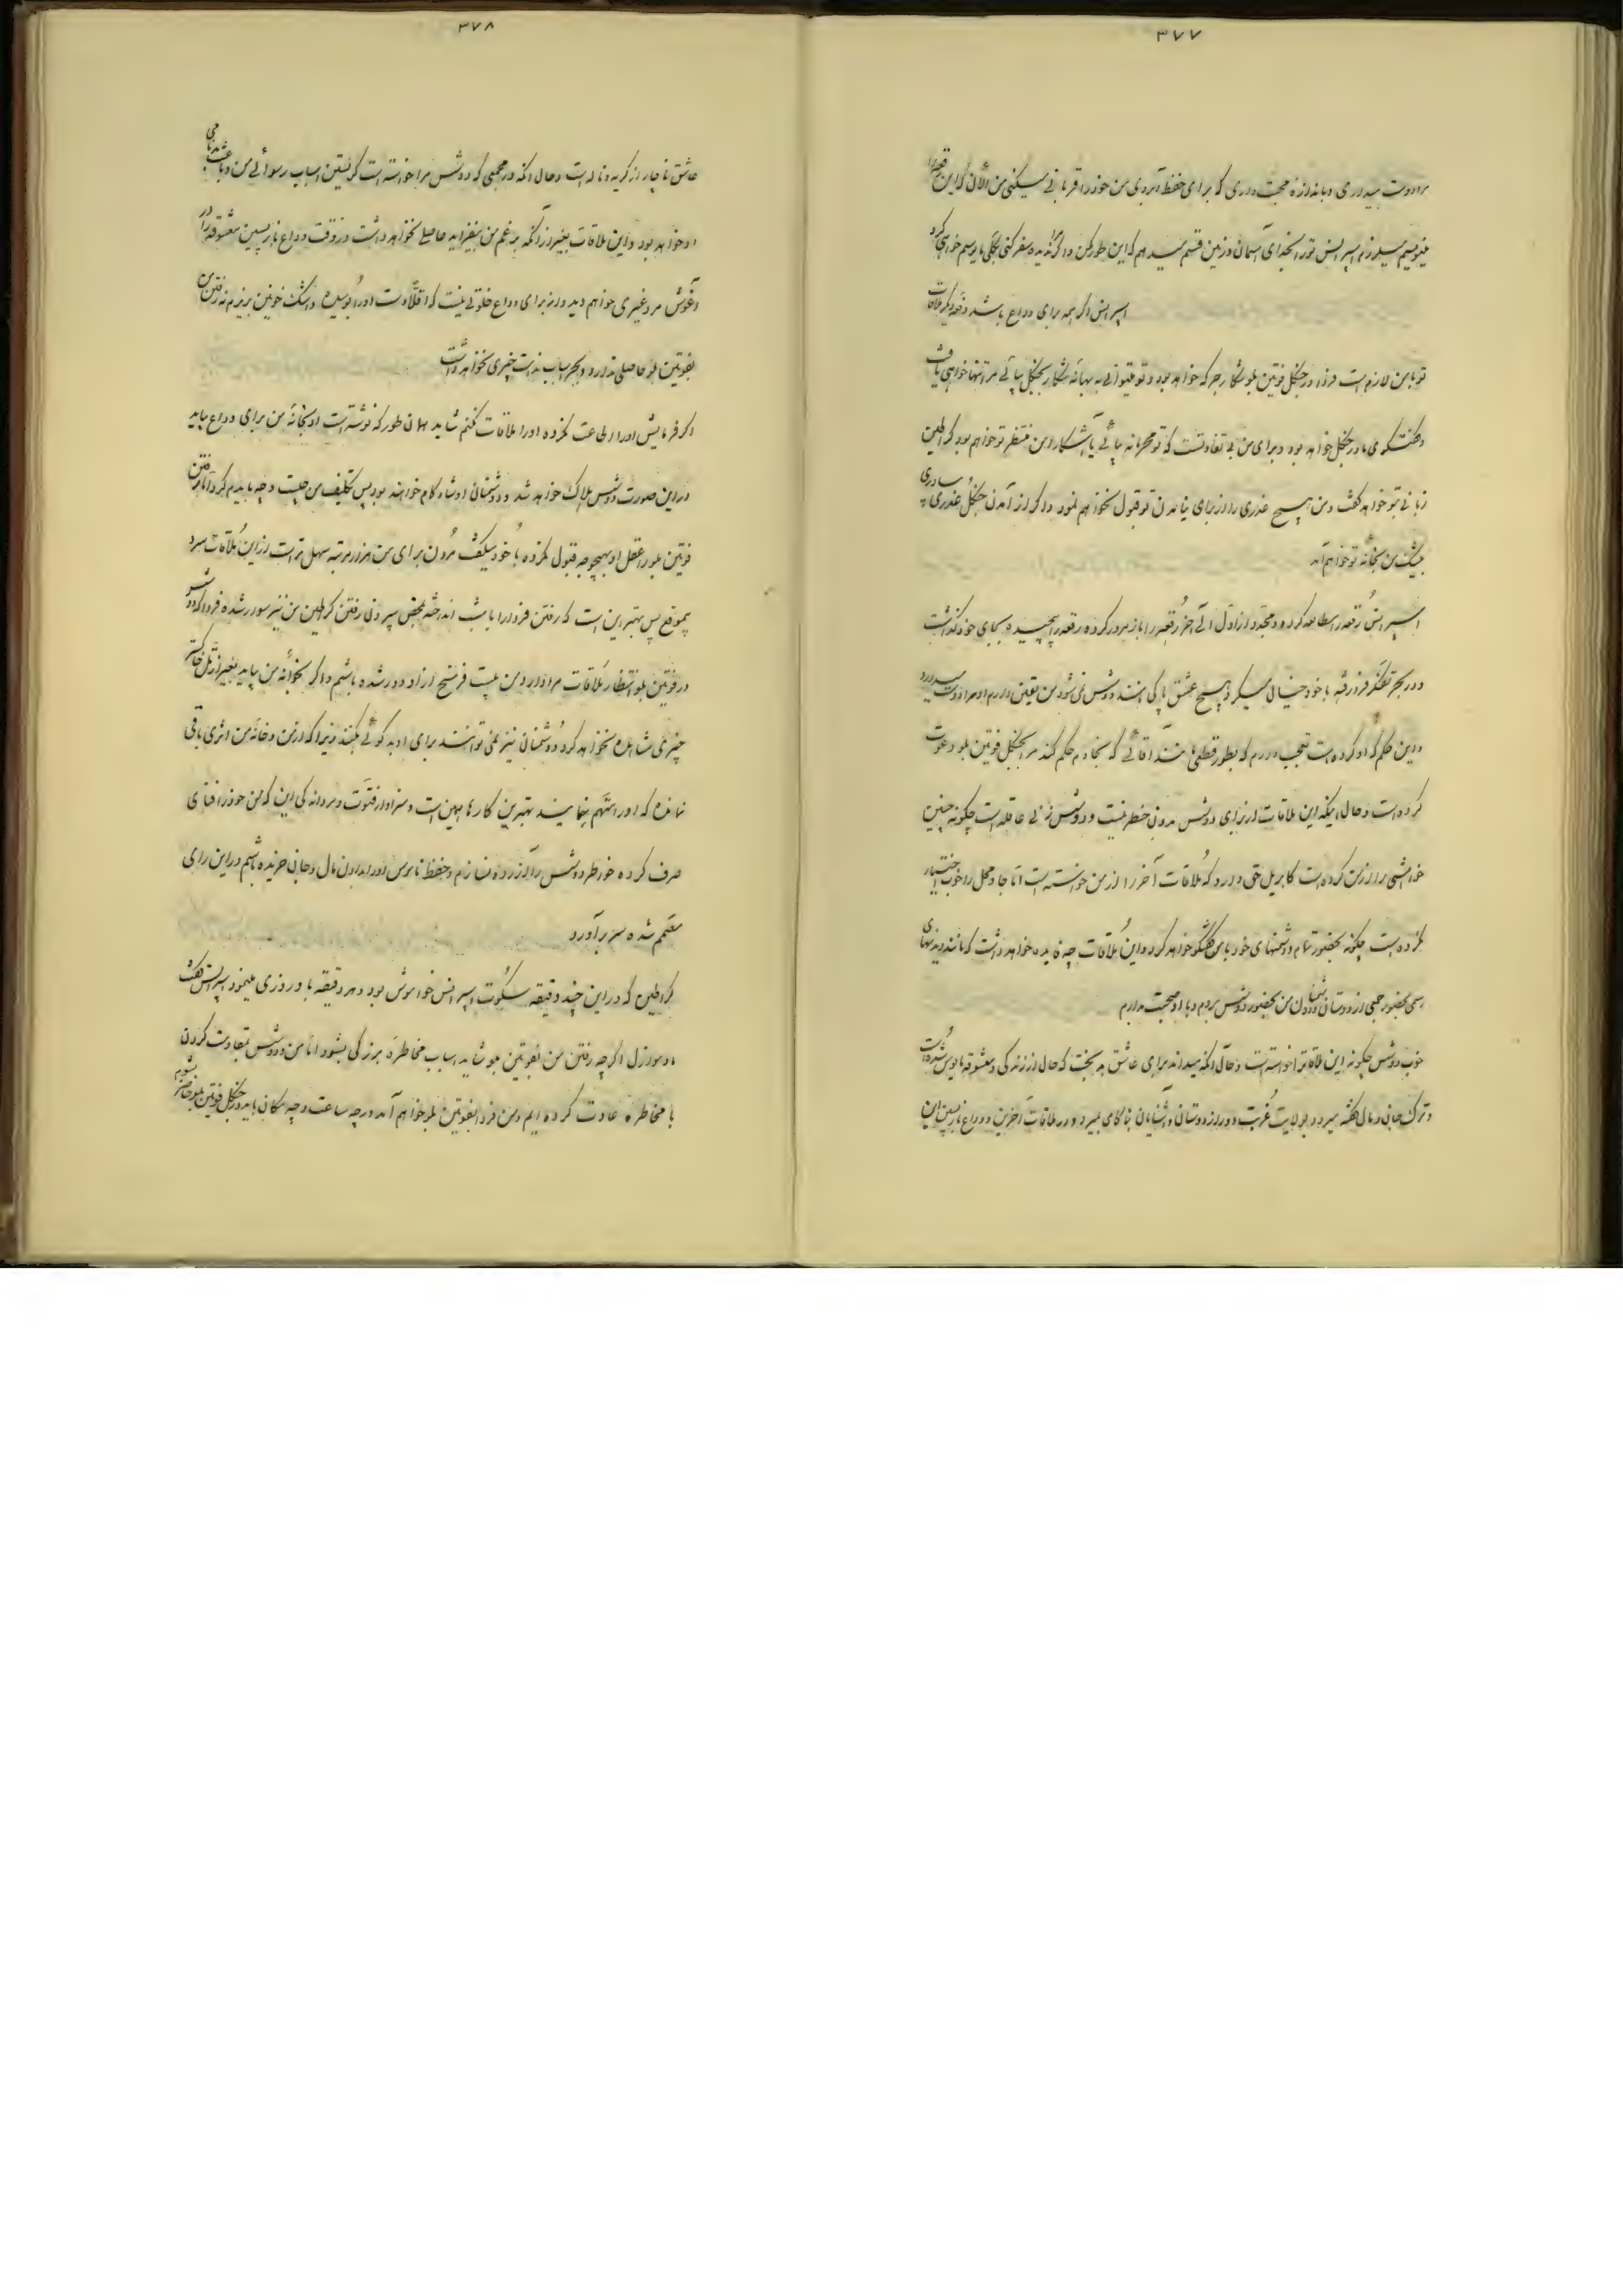 ۳۷۷
مرا دوست میداری و باندازهٔ محبت داری که برای حفظ آبروی من خود را قربانی میکنی من الآن که این رقعه را
مینویسم میلرزم اسپرانس تو را بخدای آسمان و زمین قسم میدهم که این طور مکن و اگر ندیده سفر کنی بکلی مأیوسم خواهی کرد
اسپرانس اگر همه برای وداع باشد دفعه دیگر ملاقات
تو با من لازم است فردا در جنگل فونتن بلو شکار جرگه خواهد بود و تو میتوانی به بهانهٔ شکار بجنگل بیائی مرا تنها خواهی یافت
و گفتگوی ما در جنگل خواهد بود و برای من بی تفاوتست که تو محرمانه بیائی یا آشکارا من منتظر تو خواهم بود کراطین
زبانی بتو خواهد گفت و من هیچ عذری را از برای نیامدن تو قبول نخواهم نمود و اگر از آمدن جنگل عذری بیاوری
بیشک من بخانهٔ تو خواهم آمد
اسپرانس رقعه را مطالعه کرده و مجدد از اول الی آخر رقعه را باز مرور کرده رقعه را پیچیده بجای خود گذاشت
و در بحر تفکر فرو رفته با خود خیال میکرد هیچ عشق پاکی مانند دوشس نمی‌شود من یقین دارم او مرا دوست میدارد
و این حکم که او کرده است تعجب دارم که بطور قطعی مانند آقائی که بخادم حکم کند مرا بجنگل فونتن بلو دعوت
کرده است و حال اینکه این ملاقات از برای دوشس بدون خطر نیست و دوشس زنی عاقله است چگونه چنین
خواهشی را از من کرده است کابریل حق دارد که ملاقات آخر را از من خواسته است اما جا و محل را خوب اختیار
نکرده است چگونه بحضور تمام دشمنهای خود با من گفتگو خواهد کرد و این ملاقات چه فایده خواهد داشت که مانند دیدنیهای
رسمی بحضور جمعی از دوستان و دشمنان من بحضور دوشس بروم و با او صحبت بدارم
خوب دوشس چگونه این ملاقات را خواسته است و حال آنکه میداند برای عاشق بدبخت که حال از زندگی و معشوقه مأیوس شده است
و ترک جان و مال گفته میرود بولایت غربت و دور از دوستان و آشنایان بناکامی بمیرد و در ملاقات آخرین و وداع بازپسین این
۳۷۸
عاشق ناچار از گریه و ناله است و حال آنکه در مجمعی که دوشس مرا خواسته است گریستن اسباب رسوائی من و باعث بدنامی
او خواهد بود و این ملاقات بغیر از آنکه بر غم من بیفزاید حاصلی نخواهد داشت و در وقت وداع بازپسین معشوقه را در
آغوش مرد غیری خواهم دید و از برای وداع خلوتی نیست که اقلاً دست او را بوسیده و اشک خونین بریزم نه رفتن من
بفونتن بلو حاصلی ندارد و بجز اسباب ندامت چیزی نخواهد داشت
اگر فرمایش او را اطاعت نکرده او را ملاقات نکنم شاید همان طور که نوشته است او بخانهٔ من برای وداع بیاید
در این صورت دوشس هلاک خواهد شد و دشمنان او شاد کام خواهند بود پس تکلیف من چیست و چه بایدم کرد اما رفتن
فونتن بلو را عقل او بهیچوجه قبول نکرده با خود میگفت مردن برای من هزار مرتبه سهل تر است از این ملاقات سرد
بیموقع پس بهتر این است که رفتن فردا را بامشب انداخته بمحض بیرون رفتن کراطین من نیز سوار شده فردا که دوشس
در فونتن بلو انتظار ملاقات مرا دارد من بیست فرسخ از او دور شده باشم و اگر بخانهٔ من بیاید بغیر از تل خاکستر
چیزی مشاهده نخواهد کرد و دشمنان نیز نمی توانند برای او بد گوئی بکنند زیرا که از من و خانه من اثری باقی
نمانده که او را متهم بنمایند بهترین کارها همین است و سزاوار فتوت و مردانگی این که من خود را فنای
صرف کرده خاطر دوشس را آزرده نسازم و حفظ ناموس او را بدادن مال و جانی خریده باشم در این رای
مصمم شده سر برآورد
کراطین که در این چند دقیقه سکوت اسپرانس خواموش بود و هر دقیقه باو روزی مینمود اسپرانس گفت
مادموازل اگرچه رفتن من بفونتن بلو شاید اسباب مخاطرهٔ بزرگی بشود اما من و دوشس بمقاومت کردن
با مخاطره عادت کرده ایم و من فردا بفونتن بلو خواهم آمد در چه ساعت و چه مکان باید در جنگل فونتن بلو حاضر بشوم